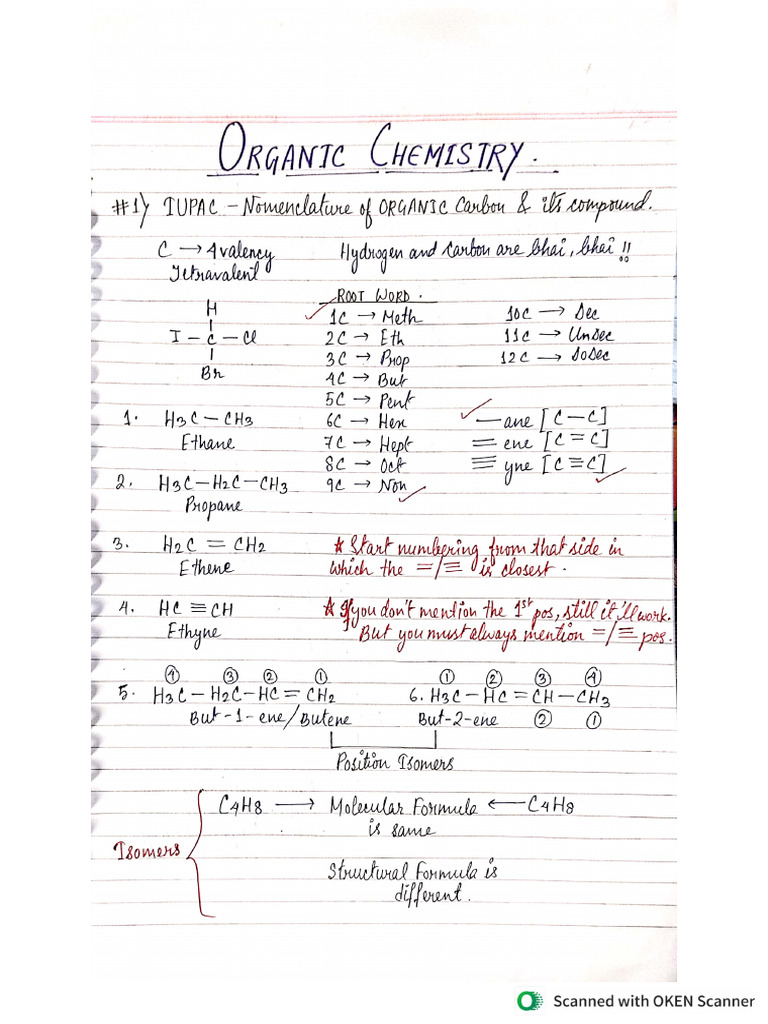 ORGANIC CHEMISTRY.
#1) IUPAC - Nomenclature of ORGANIC Carbon & its compound.
C → 4 valency
Tetravalent
Hydrogen and Carbon are bhai, bhai !!
H
I - C - Cl
Br
ROOT WORD.
1C → Meth
2C → Eth
3C → Prop
4C → But
5C → Pent
6C → Hex
7C → Hept
8C → Oct
9C → Non
10C → Dec
11C → Undec
12C → Dodec
— ane [C-C]
= ene [C=C]
≡ yne [C≡C]
1. H3C - CH3
Ethane
2. H3C - H2C - CH3
Propane
3. H2C = CH2
Ethene
* Start numbering from that side in
which the =/≡ is closest.
4. HC ≡ CH
Ethyne
* If you don't mention the 1st pos, still it'll work.
But you must always mention =/≡ pos.
④ ③ ② ①
5. H3C - H2C - HC = CH2
But-1-ene/Butene
① ② ③ ④
6. H3C - HC = CH - CH3
But-2-ene ② ①
Position Isomers
Isomers
C4H8 → Molecular Formula ← C4H8
is same
Structural Formula is
different.
Scanned with OKEN Scanner